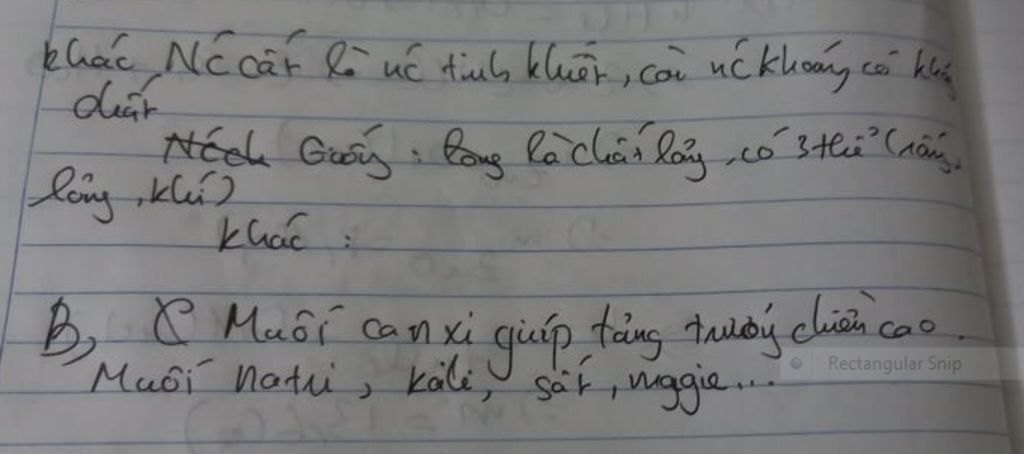 khác Nc cất là nc tinh khiết, còn nc khoáng có kh
chất
Giống : là chất lỏng, có 3 thể (rắn,
lỏng, khí)
khác :
B, Muối canxi giúp tăng trưởng chiều cao.
Muối natri, kali, sắt, magie...
Rectangular Snip